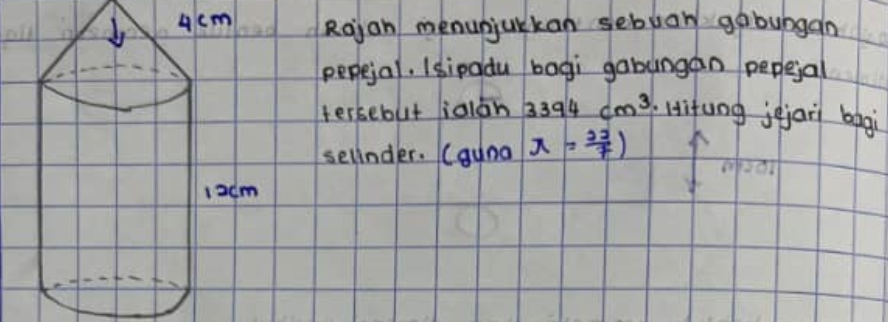 4cm
Rajah menunjukkan sebuah gabungan
pepejal. Isipadu bagi gabungan pepejal
tersebut ialah 3394 cm³. Hitung jejari bagi
selinder. (guna π = 22/7)
12cm
10cm